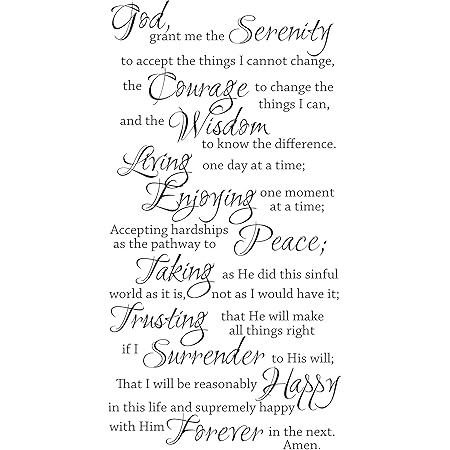 God,
grant me the Serenity
to accept the things I cannot change,
the Courage to change the
things I can,
and the Wisdom
to know the difference.
Living one day at a time;
Enjoying one moment
at a time;
Accepting hardships
as the pathway to Peace;
Taking as He did this sinful
world as it is, not as I would have it;
Trusting that He will make
all things right
if I Surrender to His will;
That I will be reasonably Happy
in this life and supremely happy
with Him Forever in the next.
Amen.